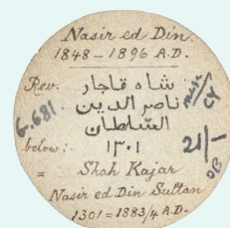 Nasir ed Din.
1848 – 1896 A.D.
Rev. شاه قاجار
ناصر الدين
السّلطان
G.681.
below: ١٣٠١
21/-
= Shah Kajar
Nasir ed Din Sultan
1301 = 1883/4 A.D.